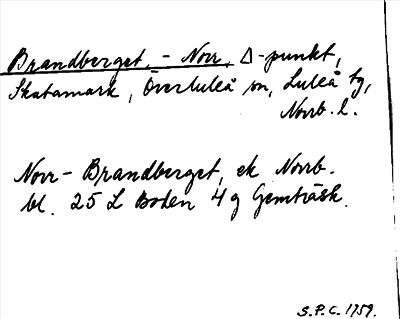 Brandberget, - Norr, Δ-punkt,
Skatamark, Överluleå sn, Luleå tg,
Norrb. l.
Norr-Brandberget, ek Norrb.
bl. 25 L Boden 4 g Gemträsk.
S.P.C. 1759.